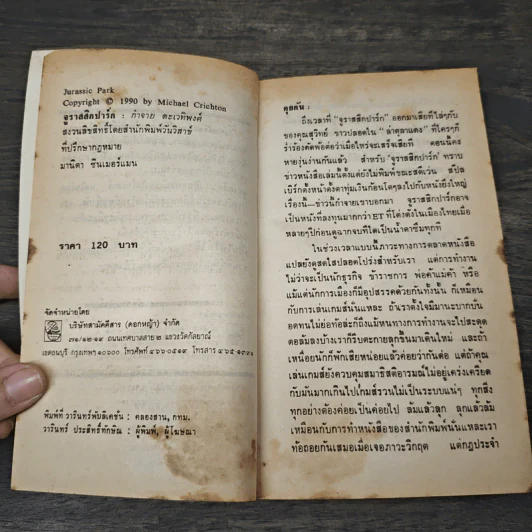 Jurassic Park
Copyright © 1990 by Michael Crichton
จูราสสิกปาร์ก : กำจาย ตะเวทิพงศ์
สงวนลิขสิทธิ์โดยสำนักพิมพ์วันวิสาข์
ที่ปรึกษากฎหมาย
มานิตา ซินเมอร์แมน
ราคา 120 บาท
จัดจำหน่ายโดย
บริษัทสามัคคีสาร (ดอกหญ้า) จำกัด
ถนนเทศบาลสาย ๒ แขวงวัดกัลยาณ์
เขตธนบุรี กรุงเทพฯ ๑๐๖๐๐ โทรศัพท์ โทรสาร
พิมพ์ที่ วารินทร์พับลิเคชั่น : คลองสาน, กทม.
วารินทร์ ประสิทธิ์ทักษิณ : ผู้พิมพ์, ผู้โฆษณา
คุยกัน :
ถึงเวลาที่ “จูราสสิกปาร์ก” ออกมาเสียที ไล่ๆกับ
ของคุณสุวิทย์ ขาวปลอดใน “ล่าตุลาแดง” ที่ใครๆก็
ร่ำร้องติดพ้อต่อว่าเมื่อไหร่จะเสร็จเสียที ตอนนี้คง
หายงุ่นง่านกันแล้ว สำหรับ ‘จูราสสิกปาร์ก’ ทราบ
ข่าวหนังสือเล่มนี้ตั้งแต่ยังไม่พิมพ์ขณะสตีเว่น สปีล
เบิร์กตั้งหน้าตั้งตาทุ่มเงินก้อนโตๆลงไปกับหนังยิ่งใหญ่
เรื่องนี้—ข่าววันี้กำจายเขาบอกมา จูราสสิกปาร์กอาจ
เป็นหนังที่ลงทุนมากกว่า ET ที่โด่งดังในเมืองไทยเมื่อ
หลายๆปีก่อนดูฉากจบทีไดเป็นน้ำตาซึมทุกที
ในช่วงเวลาแบบนี้ภาวะทางการตลาดหนังสือ
แปลยังดูสดใสปลอดโปร่งสำหรับเรา แต่การทำงาน
ไม่ว่าจะเป็นนักธุรกิจ ข้าราชการ พ่อค้าแม่ค้า หรือ
แม้แต่นักการเมืองก็มีอุปสรรคด้วยกันทั้งนั้น ก็เหมือน
กับการเล่นเกมส์นั่นแหละ ถ้าเราตั้งใจมีมานะบากบั่น
อดทนไม่ย่อท้อล่ะก็ถึงแม้หนทางการทำงานจะไปสะดุด
ตอล้มลงบ้างเราก็รีบตะกายลุกขึ้นมาเดินใหม่ และถ้า
เหนื่อยนักก็พักเสียหน่อยแล้วค่อยว่ากันต่อ แต่ถ้าคุณ
เล่นเกมส์ยังควบคุมสมาธิสติอารมณ์ไม่อยู่เคร่งเครียด
กับมันมากเกินไปเกมส์รวนไม่เป็นระบบแน่ๆ ทุกสิ่ง
ทุกอย่างต้องค่อยเป็นค่อยไป ล้มแล้วลุก ลุกแล้วล้ม
เหมือนกับการทำหนังสือของสำนักพิมพ์นั่นแหละเรา
ท้อถอยกันเสมอเมื่อเจอภาวะวิกฤต แต่กฎประจำ